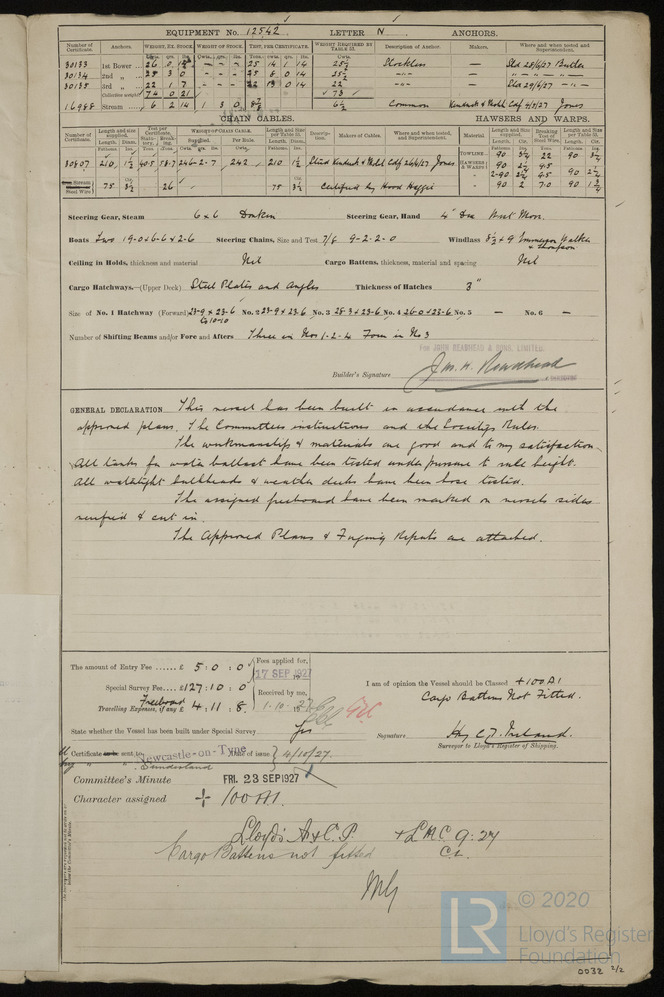 EQUIPMENT No. 12542 LETTER N ANCHORS.
Number of Certificate. Anchors. WEIGHT, EX. STOCK. WEIGHT OF STOCK. TEST, PER CERTIFICATE. WEIGHT REQUIRED BY TABLE 53. Description of Anchor. Makers. Where and when tested and Superintendent.
30133 1st Bower ... 26 0 25 14 1 14 25½ Stockless — Sld 28/6/27 Butler
30134 2nd „ ... 25 3 0 - - - 25 8 0 14 25½ -"- —
30135 3rd „ ... 22 1 7 - - - 22 13 0 14 22 -"- — Sld 29/6/27 -"-
Collective weight 74 0 21 73
16988 Stream ... 6 2 14 1 3 0 6½ Common Cdf 4/7/27 Jones
CHAIN CABLES. HAWSERS AND WARPS.
Number of Certificate. Length and size supplied. Test per Certificate. WEIGHT OF CHAIN CABLE. Length and Size per Table 53. Description. Makers of Cables. Where and when tested, and Superintendent. Material. Length and Size supplied. Breaking Test of Steel Wire. Length and Size per Table 53.
30807 210 1½ 40.5 58.7 246-2-7 242 210 1½ Stud Cdf 26/6/27 Jones
TOWLINE... 90 3¾ 22 90 3¾
HAWSERS & WARPS 90 2½ 9.5
2-90 2¾ 9.5 90 2½
Stream Steel Wire 75 3½ 26 75 3½ Certified by Hood Haggie - 90 2 7.0 90 1¾
Steering Gear, Steam 6 x 6 Donkin Steering Gear, Hand 4" Dia
Boats Two 19-0 x 6-6 x 2-6 Steering Chains, Size and Test 7/8 9-2-2-0 Windlass 8½ x 9 Emmerson Walker & Thompson
Ceiling in Holds, thickness and material Nil Cargo Battens, thickness, material and spacing Nil
Cargo Hatchways.—(Upper Deck) Steel Plates and Angles Thickness of Hatches 3"
Size of No. 1 Hatchway (Forward) 23-9 x 23-6 No. 2 23-9 x 23.6 No. 3 28-3 x 23-6 No. 4 26-0 x 23-6 No. 5 — No. 6 —
Number of Shifting Beams and/or Fore and Afters Three in Nos 1-2-4 Four in No 3
For JOHN READHEAD & SONS, LIMITED.
Builder's Signature Jas. H. Readhead
GENERAL DECLARATION This vessel has been built in accordance with the
approved plans. The Committees instructions and the Society's Rules.
The workmanship & materials are good and to my satisfaction.
All tanks for water ballast have been tested under pressure to rule height.
All watertight bulkheads & weather decks have been hose tested.
The assigned freeboard have been marked on vessels sides
verified & cut in.
The Approved Plans & Forging Reports are attached.
The amount of Entry Fee ...... £ 5 : 0 : 0 Fees applied for,
Special Survey Fee.... £127 : 10 : 0 17 SEP 1927
Freeboard Received by me,
Travelling Expenses, if any £ 4 : 11 : 8. 1.10.27
I am of opinion the Vessel should be Classed +100A1
Cargo Battens Not Fitted.
State whether the Vessel has been built under Special Survey Yes Signature
Surveyor to Lloyd's Register of Shipping.
Certificate sent to Newcastle-on-Tyne Date of issue 4/10/27.
Sunderland
Committee's Minute FRI. 23 SEP 1927
Character assigned + 100A1.
Lloyd's A & C.P. + LMC 9.27
Cargo Battens not fitted C.L.
LR © 2020
Lloyd's Register
Foundation
0032 2/2